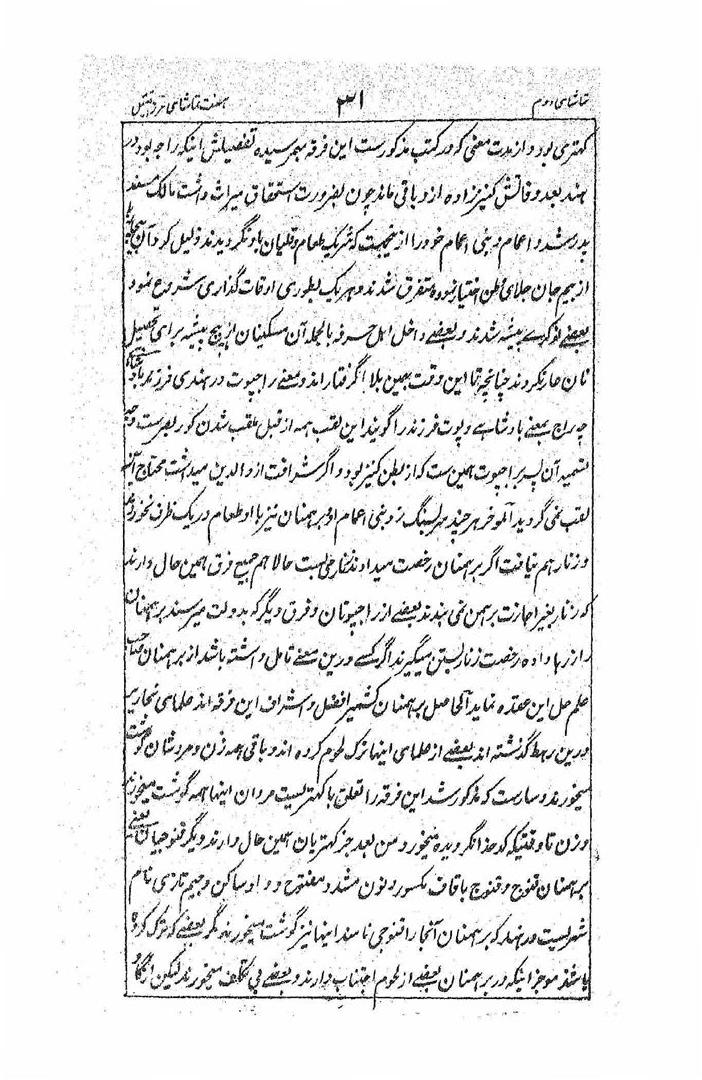 تماشای دوم ۳۱ هفت تماشای مرزا قتیل
کهتری بود و از مدت معنی که در کتب مذکورست این فرقه بهمرسیده تفصیلش اینکه راجه بود در
هند بعد وفاتش کنیززاده ازو باقی ماند چون بضرورت استحقاق میراث داشت مالک مسند
پدر شد و اعمام و بنی اعمام خود را ازینجهت که شریک طعام و قلیان با و نگردیدند ذلیل کرد آن
از بیم جان جلای وطن اختیار نموده متفرق شدند و هر یک بطوری اوقات گذاری شروع نمود
بعضے نوکرے پیشه شدند و بعضے داخل اهل حرفه بالجمله آن مسکینان از هیچ پیشه برای تحصیل
نان عار نکردند چنانچه تا این وقت بهمین بلا گرفتار اند و معنے راجپوت در هندی فرزند بادشاه
چه راج بمعنے بادشاهے و پوت فرزند را گویند این لقب همه از قبل ملقب شدن کور بصرست وجه
تسمیه آن پسر براجپوت همین ست که از بطن کنیز بود و اگر شرافت از والدین میداشت محتاج این
لقب نمی گردید آلموخر هر چند نرسینگ زد بنی اعمام او برهمنان نیز با او طعام در یک ظرف نخوردند
و زنار هم نیافت اگر برهمنان رخصت میدادند حالا هم جمیع فرق همین حال دارند
که زنار بغیر اجازت برهمن نمی بندند بعضے از راجپوتان و فرق دیگر که بدولت میرسند برهمنان
را زرها داده رخصت زنار بستن میگیرند اگر کسے درین معنے تامل داشته باشد از برهمنان صاحب
علم حل این عقده نماید آلحاصل برهمنان کشمیر افضل و اشراف این فرقه اند علمای نحاریر
درین رهط گذشته اند بعضے از علمای اینها ترک لحوم کرده اند و باقی همه زن و مرد شان گوشت
میخورند و سارست که مذکور شد این فرقه را تعلق با کهتریست مردان اینها همه گوشت میخورند
و زن تا وقتیکه کدخدا نگردیده میخورد و من بعد جز کهتریان همین حال دارند و دیگر قنوجیان یعنے
برهمنان قنوج و قنوج با قاف مکسور و نون مشدد مفتوح و واو ساکن و جیم تازی نام
شهریست در هند که برهمنان آنجا را قنوجی نامند اینها نیز گوشت میخورند مگر بعضے که ترک کرده
باشند موجز اینکه در برهمنان بعضے از لحوم اجتناب دارند و بعضے بی تکلف میخورند لیکن از گاو